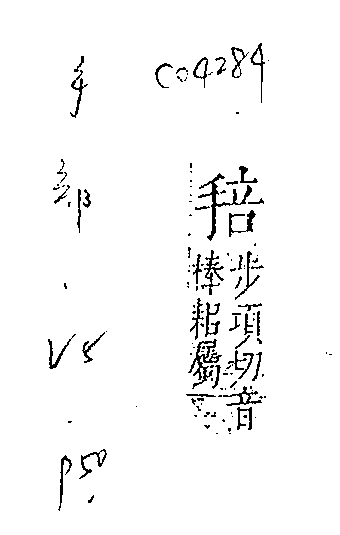 C04284
手部.V5.P50.
⿰手咅
步項切音
棒耜屬